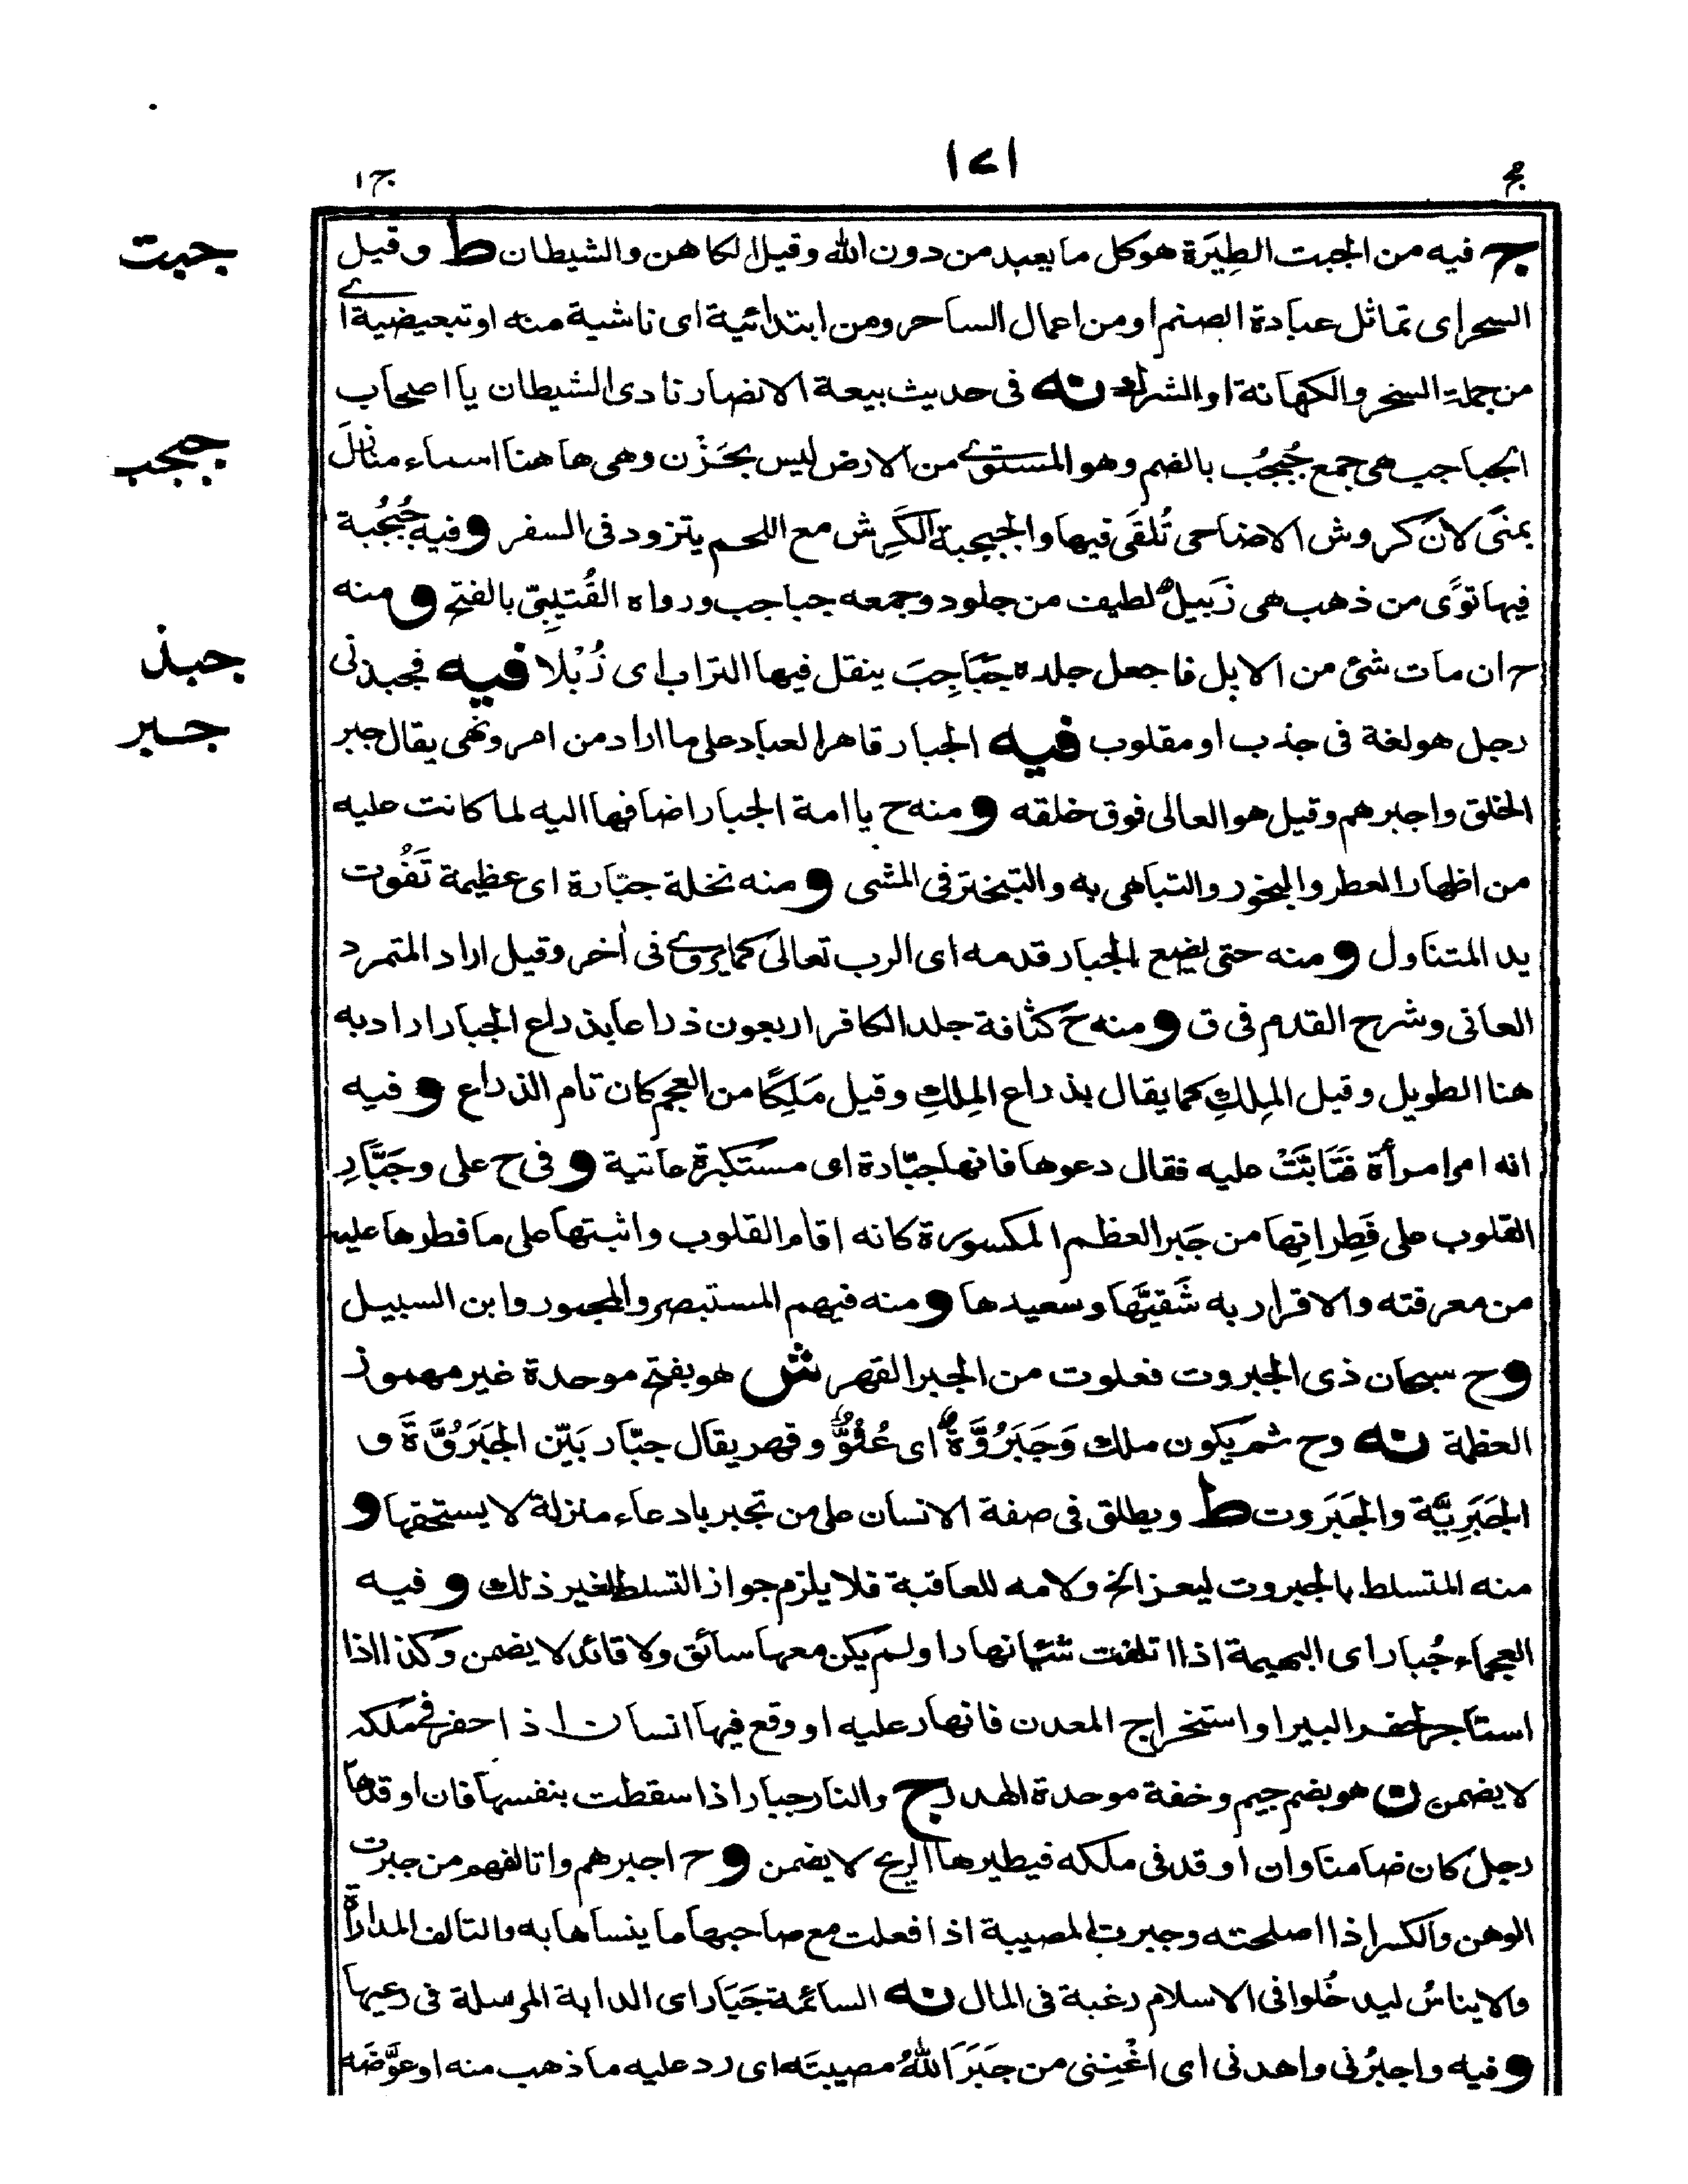 ج
١٧١
ج ١
ج فيه من الجبت الطِيَرة هو كل ما يعبد من دون الله وقيل الكاهن والشيطان ط وقيل
السحر اى تماثل عبادة الصنم او من اعمال الساحر ومن ابتدائية اى ناشية منه او تبعيضية اى
من جملة السحر والكهانة او الشرك نه فى حديث بيعة الانصار نادى الشيطان يا اصحاب
الجباجب هى جمع جُبجُب بالضم وهو المستوى من الارض ليس بحَزْن وهى هاهنا اسماء منازل
بمنىً لان كروش الاضاحى تُلقَى فيها والجبجبة الكَرِش مع اللحم يتزود فى السفر و فيه جُبجُبة
فيها نوًى من ذهب هى زَبيل لطيف من جلود وجمعه جباجب ورواه القُتيبِىّ بالفتح و منه
ح ان مات شئ من الابل فاجعل جلده جَبَاجِبَ ينقل فيها التراب اى زُبْلا فيه فجبذنى
رجل هو لغة فى جذب او مقلوب فيه الجبار قاهر العباد على ما اراد من امر ونهى يقال جبر
الخلق واجبرهم وقيل هو العالى فوق خلقه و منه ح يا امة الجبار اضافها اليه لما كانت عليه
من اظهار العطر والبخور والتباهى به والتبختر فى المشى و منه نخلة جبّارة اى عظيمة تَفُوت
يد المتناول و منه حتى يضع الجبار قدمه اى الرب تعالى كما يروى فى اٰخر وقيل اراد المتمرد
العاتى وشرح القدم فى ق و منه ح كثافة جلد الكافر اربعون ذراعا بذراع الجبار اراد به
هنا الطويل وقيل المِلك كما يقال بذراع المِلكِ وقيل مَلِكًا من العجم كان تام الذراع و فيه
انه امر امرأة فَتَابَّتْ عليه فقال دعوها فانها جبّارة اى مستكبرة عاتية و فى ح على وجَبَّارِ
القلوب على فَطِراتِها من جَبر العظم المكسورة كانه اقام القلوب واثبتها على ما فطرها عليه
من معرفته والاقرار به شَقيّها وسعيدها و منه فيهم المستبصر والمجبور وابن السبيل
و ح سبحان ذى الجبروت فعلوت من الجبر القهر ش هو بفتح موحدة غير مهموز
العظمة نه وح ثم يكون ملك وَجَبَرُوَّةٌ اى عُتُوٌّ وقهر يقال جبّار بَيّن الجَبَرُوَّةَ و
الجَبَرِيَّة والجَبَروت ط ويطلق فى صفة الانسان على من تجبر بادعاء منزلة لا يستحقها و
منه المتسلط بالجبروت ليعز الخ ولامه للعاقبة فلا يلزم جواز التسلط لغير ذلك و فيه
العجماء جُبار اى البهيمة اذا اتلفت شيئا نهارا ولم يكن معها سائق ولا قائد لا يضمن وكذا اذا
استاجر لحفر البير او استخراج المعدن فانهار عليه او وقع فيها انسان اذا حفر فى ملكه
لا يضمن ن هو بضم جيم وخفة موحدة الهدر ج والنار جبار اذا سقطت بنفسها فان اوقدها
رجل كان ضامنا وان اوقد فى ملكه فيطيرها الريح لا يضمن و ح اجبرهم واتالفهم من جبرت
الوهن والكسر اذا اصلحته وجبرت المصيبة اذا فعلت مع صاحبها ما ينساها به والتالف المداراة
والايناسُ ليدخُلوا فى الاسلام رغبة فى المال نه السائمة جَبَار اى الدابة المرسلة فى رعيها
و فيه واجبرُنى واهدنى اى اغْنِنِى من جَبَرَ اللهُ مصيبتَه اى رد عليه ما ذهب منه او عوَّضَه
جبت
جبجب
جبذ
جبر